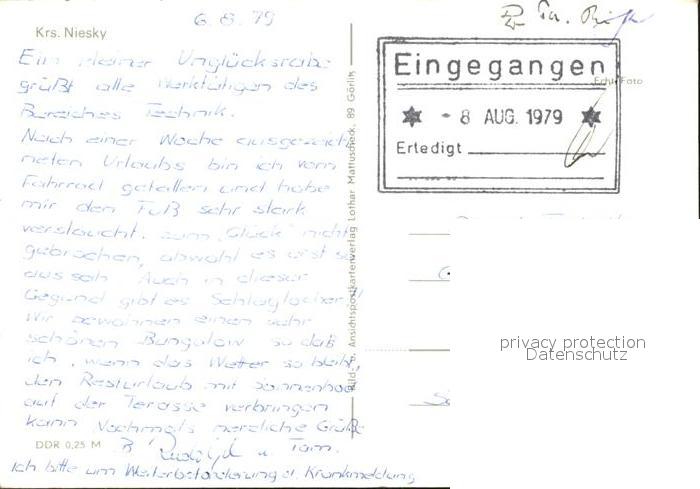 6.8.79
Krs. Niesky
Ein kleiner Unglücksrabe
grüßt alle Werktätigen des
Bereiches Technik.
Nach einer Woche ausgezeich-
neten Urlaubs bin ich vom
Fahrrad gefallen und habe
mir den Fuß sehr stark
verstaucht. zum "Glück" nicht
gebrochen, obwohl es erst so
aussah. Auch in dieser
Gegend gibt es Schlaglöcher!
Wir bewohnen einen sehr
schönen Bungalow so daß
ich, wenn das Wetter so bleibt,
den Resturlaub mit Sonnenbad
auf der Terasse verbringen
kann Nochmals herzliche Grüße
DDR 0,25 M
u. Tom.
Ich bitte um Weiterbeförderung d. Krankmeldung
Ansichtspostkartenverlag Lothar Mattuscheck, 89 Görlitz
Eingegangen
Echt Foto
- 8 AUG. 1979
Erledigt
privacy protection
Datenschutz